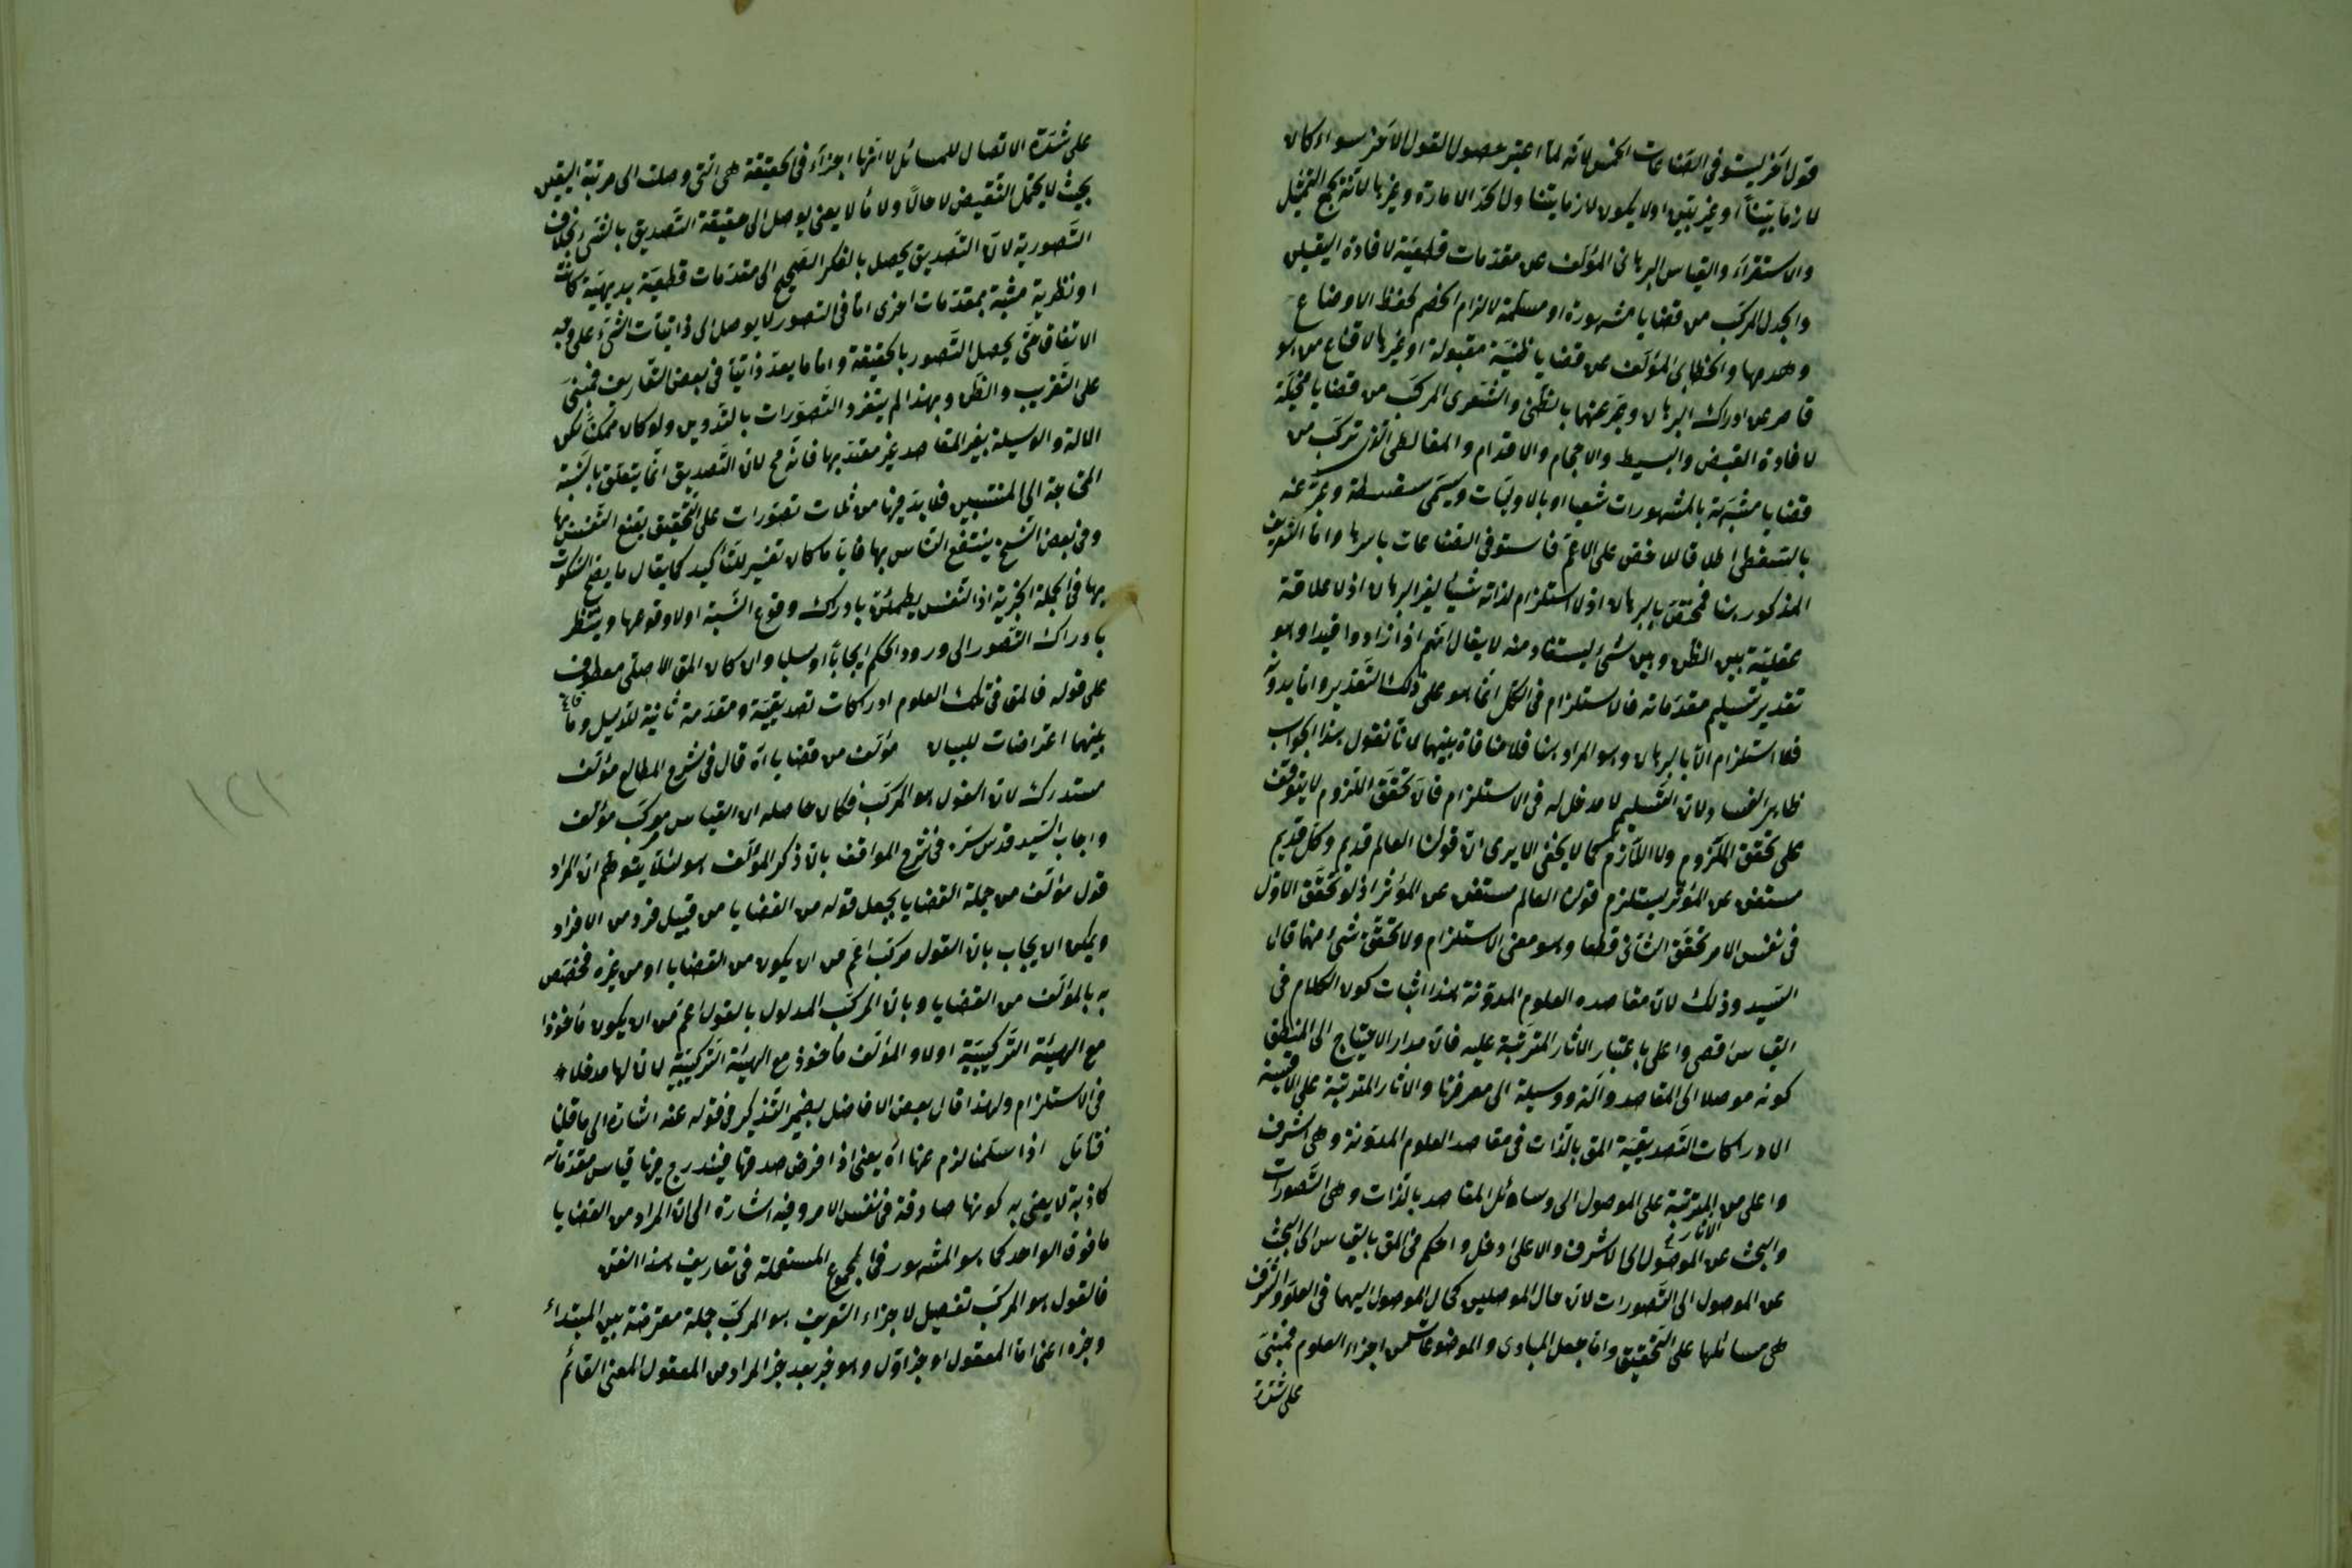 قول آخر ليستوفي الصناعات الخمس لانه لما اعتبر حصول القول الآخر سواء كان
لازما بينا او غير بين او لا يكون لازما يتناول حد الامارة وغيرها لانه يجمع التمثيل
والاستقراء والقياس البرهاني المؤلف من مقدمات قطعية لافادة اليقين
والجدل المركب من قضايا مشهورة او مسلمة لالزام الخصم لحفظ الاوضاع
وهدمها والخطابي المؤلف من قضايا ظنية مقبولة او غيرها لاقناع من هو
قاصر عن ادراك البرهان وعبر عنهما بالظن والشعري المركب من قضايا مخيلة
لافادة القبض والبسيط والاحجام والاقدام والمغالطي الذي تركب من
قضايا مشبهة بالمشهورات شغبا او بالاوليات ويسمى سفسطة وعبر عنه
بالسفطي اطلاقا للاخص على الاعم فاستوفى الصناعات باسرها واما التعريف
المذكور هنا فمختص بالبرهان اذ لا استلزام لذاته شيئا لغير البرهان اذ لا علاقة
عقلية بين الظن وبين شيء يستفاد منه لا يقال انهم اذا زادوا قيدا وهو
تقدير تسليم مقدماته فالاستلزام في الكل انما هو على ذلك التقدير واما بدونه
فلا استلزام الا بالبرهان وهو المراد هنا فلا منافاة بينهما لانا نقول هذا الجواب
ظاهر الفساد لان التسليم لا مدخل له في الاستلزام فان تحقق اللزوم لا يتوقف
على تحقق الملزوم ولا اللازم كما لا يخفى الا يرى ان قولنا العالم قديم وكل قديم
مستغن عن المؤثر يستلزم قولنا العالم مستغن عن المؤثر اذ لو تحقق الاول
في نفس الامر تحقق الثاني قطعا وهو معنى الاستلزام ولا تحقق شيء منهما قال
السيد وذلك لان مقاصده العلوم المدونة هذا اثبات كون الكلام في
القياس اقصى واعلى باعتبار الآثار المترتبة عليه فان مدار الاحتياج الى المنطق
كونه موصلا الى المقاصد وآلة ووسيلة الى معرفتها والآثار المترتبة على الاقيسة
الادراكات التصديقية المق بالذات في مقاصد العلوم المدونة وهي اشرف
واعلى من المترتبة على الموصول الى وسائل المقاصد بالذات وهي التصورات
والبحث عن الموصول الى الآثار الاشرف والاعلى ادخل واحكم في المق بالقياس الى البحث
عن الموصول الى التصورات لان حال الموصلين كحال الموصول اليهما في العلو والشرف
هي مسائلها على التحقيق واما جعل المبادى والموضوعات من اجزاء العلوم فمبني
على شدة
على شدة الاتصال للمسائل لا انها اجزاء في الحقيقة هي التي وصلت الى مرتبة اليقين
بحيث لا يحتمل النقيض لا حالا ولا مآلا يعني يوصل الى حقيقة التصديق بالشيء بخلاف
التصورية لان التصديق يحصل بالفكر الصحيح الى مقدمات قطعية بديهية كانت
او نظرية مثبتة بمقدمات اخرى اما في التصور لا يوصل الى ذاتيات الشيء على وجه
الاتفاق حتى يحصل التصور بالحقيقة واما ما يعد ذاتيا في بعض التعاريف فمبني
على التقريب والظن وبهذا لم ينفرد التصورات بالتدوين ولو كان ممكنا لكن
الآلة والوسيلة بغير المقاصد غير معتد بها فانه مح لان التصديق انما يتعلق بالنسبة
المحتاجة الى المنتسبين فلا بد فيها من ثلاث تصورات على التحقيق يقنع النفس بها
وفي بعض النسخ ينتفع الناس بها فايا ما كان تفسير للتأكيد كما يقال ما يصح السكوت
بها في الجملة الخبرية اذ النفس يطمئن بادراك وقوع النسبة او لا وقوعها وينتظر
بادراك التصور الى ورود الحكم ايجابا او سلبا والا كان المق الاصلي معطوف
على قوله فالمق في تلك العلوم ادراكات تصديقية ومقدمة ثانية للدليل وما وقع
بينهما اعتراضات للبيان مؤلف من قضايا اه قال في شرح المطالع مؤلف
مستدرك لان القول هو المركب فكان حاصله ان القياس مركب مؤلف
واجاب السيد قدس سره في شرح المواقف بان ذكر المؤلف هو لئلا يتوهم ان المراد
قول مؤلف من جملة القضايا بجعل قوله من القضايا من قبيل فرد من الافراد
ويمكن ان يجاب بان القول مركب اعم من ان يكون من القضايا او من غيره فخصص
به بالمؤلف من القضايا وبان المركب المدلول بالقول اعم من ان يكون مأخوذا
مع الهيئة التركيبية اولا والمؤلف مأخوذ مع الهيئة التركيبية لان لها مدخلا
في الاستلزام ولهذا قال بعض الافاضل بضمير التذكير في قوله عنه اشارة الى ما قلنا
فتأمل اذا سلمنا لزم عنها اه يعني اذا افرض صدقها فيندرج فيها قياس مقدماته
كاذبة لا يعني به كونها صادقة في نفس الامر وفيه اشارة الى ان المراد من القضايا
ما فوق الواحد كما هو المشهور في الجموع المستعملة في تعاريف هذا الفن
فالقول هو المركب تفصيل لاجزاء التعريف هو المركب جملة معترضة بين المبتداء
وخبره اعني اما المعقول او خبر اول وهو خبر بعد خبر المراد من المعقول المعنى القائم
١٢١